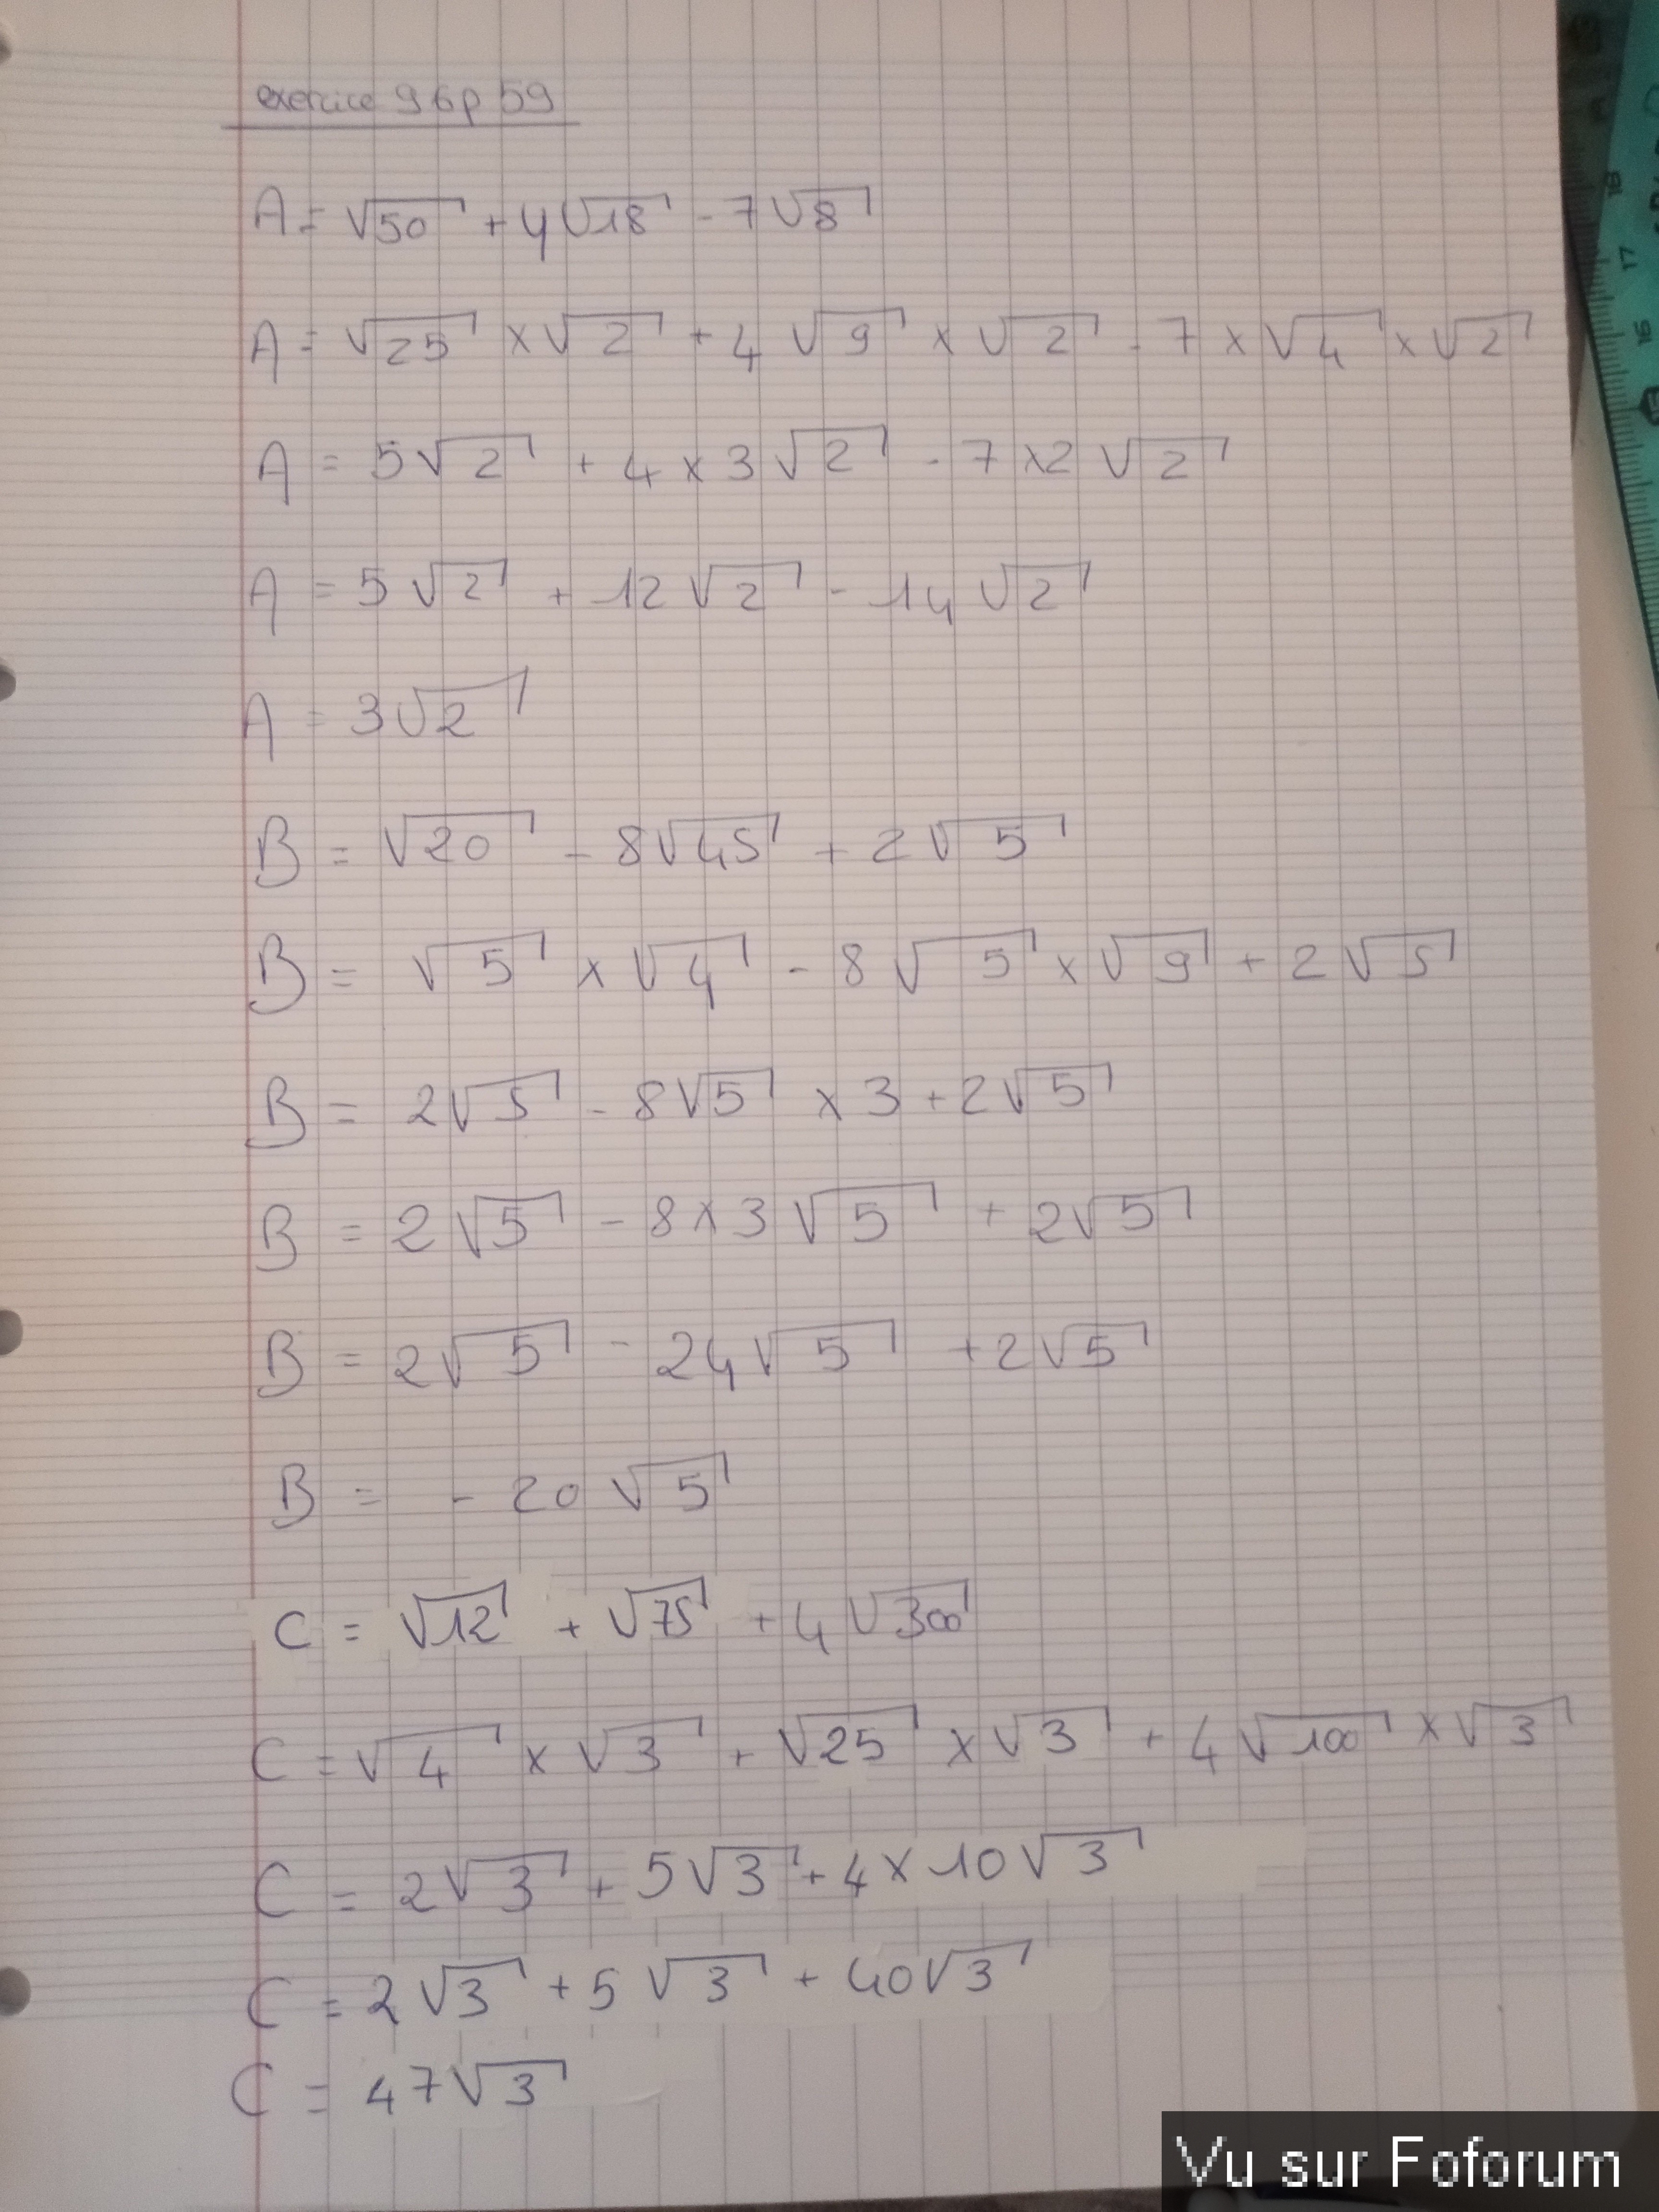 exercice 96p 59
A = √50 + 4√18 - 7√8
A = √25 × √2 + 4 √9 × √2 - 7 × √4 × √2
A = 5√2 + 4 × 3√2 - 7 × 2 √2
A = 5√2 + 12√2 - 14√2
A = 3√2
B = √20 - 8√45 + 2√5
B = √5 × √4 - 8√5 × √9 + 2√5
B = 2√5 - 8√5 × 3 + 2√5
B = 2√5 - 8 × 3√5 + 2√5
B = 2√5 - 24√5 + 2√5
B = - 20√5
C = √12 + √75 + 4√300
C = √4 × √3 + √25 × √3 + 4√100 × √3
C = 2√3 + 5√3 + 4 × 10√3
C = 2√3 + 5√3 + 40√3
C = 47√3
Vu sur Foforum